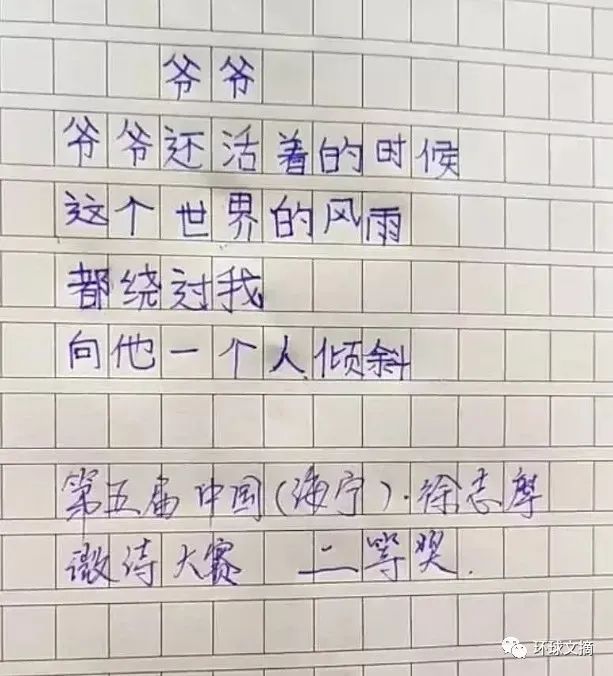 爷爷
爷爷还活着的时候
这个世界的风雨
都绕过我
向他一个人倾斜
第五届中国(海宁)·徐志摩
微诗大赛 二等奖.
环球文摘